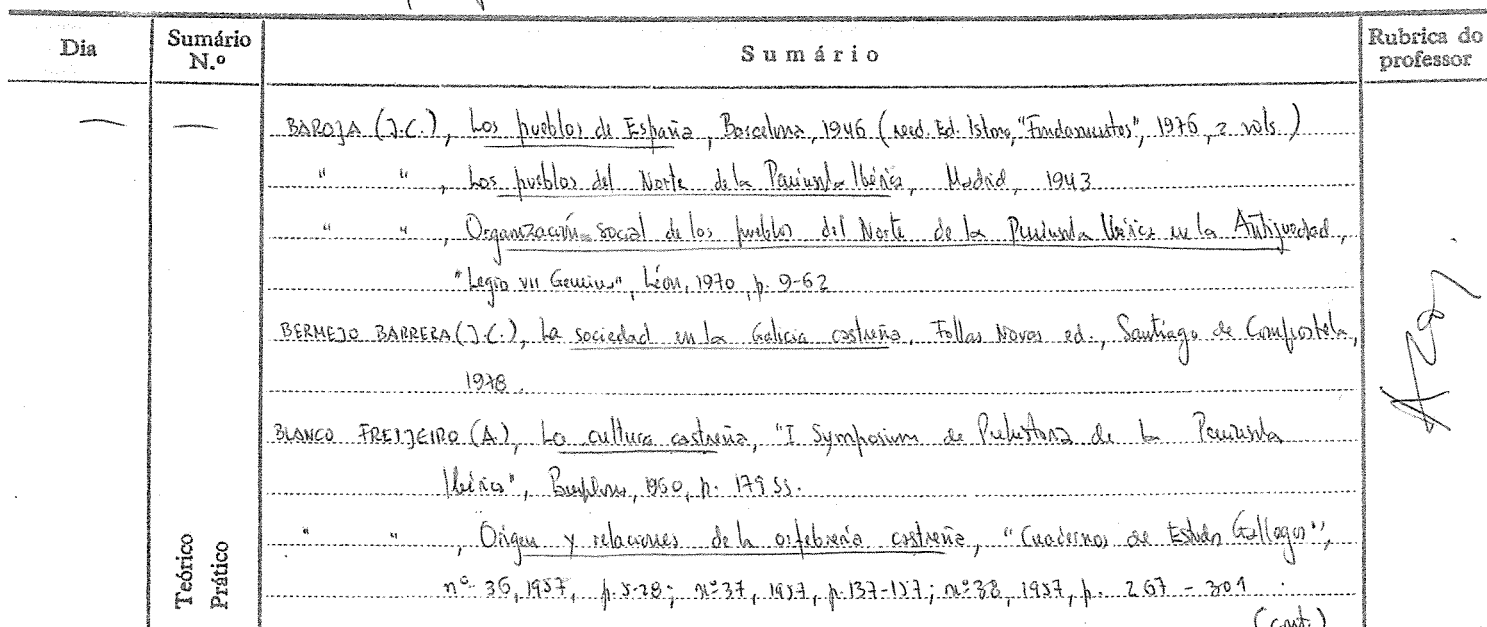 Dia
Sumário N.º
Sumário
Rubrica do professor
— — BAROJA (J.C.), Los pueblos de España, Barcelona, 1946 (reed. Ed. Istmo, "Fundamentos", 1976, 2 vols.)
" " , Los pueblos del Norte de la Peninsula Ibérica, Madrid, 1943
" " , Organización social de los pueblos del Norte de la Peninsula Ibérica en la Antiguedad,
"Legio VII Gemina", Léon, 1970, p. 9-62
BERMEJO BARRERA (J.C.), La sociedad en la Galicia castreña, Follas Novas ed., Santiago de Compostela,
1978.
BLANCO FREIJEIRO (A.), La cultura castreña, "I Symposium de Prehistoria de la Peninsula
Ibérica", 1960, p. 179 ss.
" " , Origen y relaciones de la orfebreria castreña, "Cuadernos de Estudos Gallegos",
nº 36, 1957, p. 5-28; nº 37, 1957, p. 137-157; nº 38, 1957, p. 267-301
(cont.)
Teórico
Prático